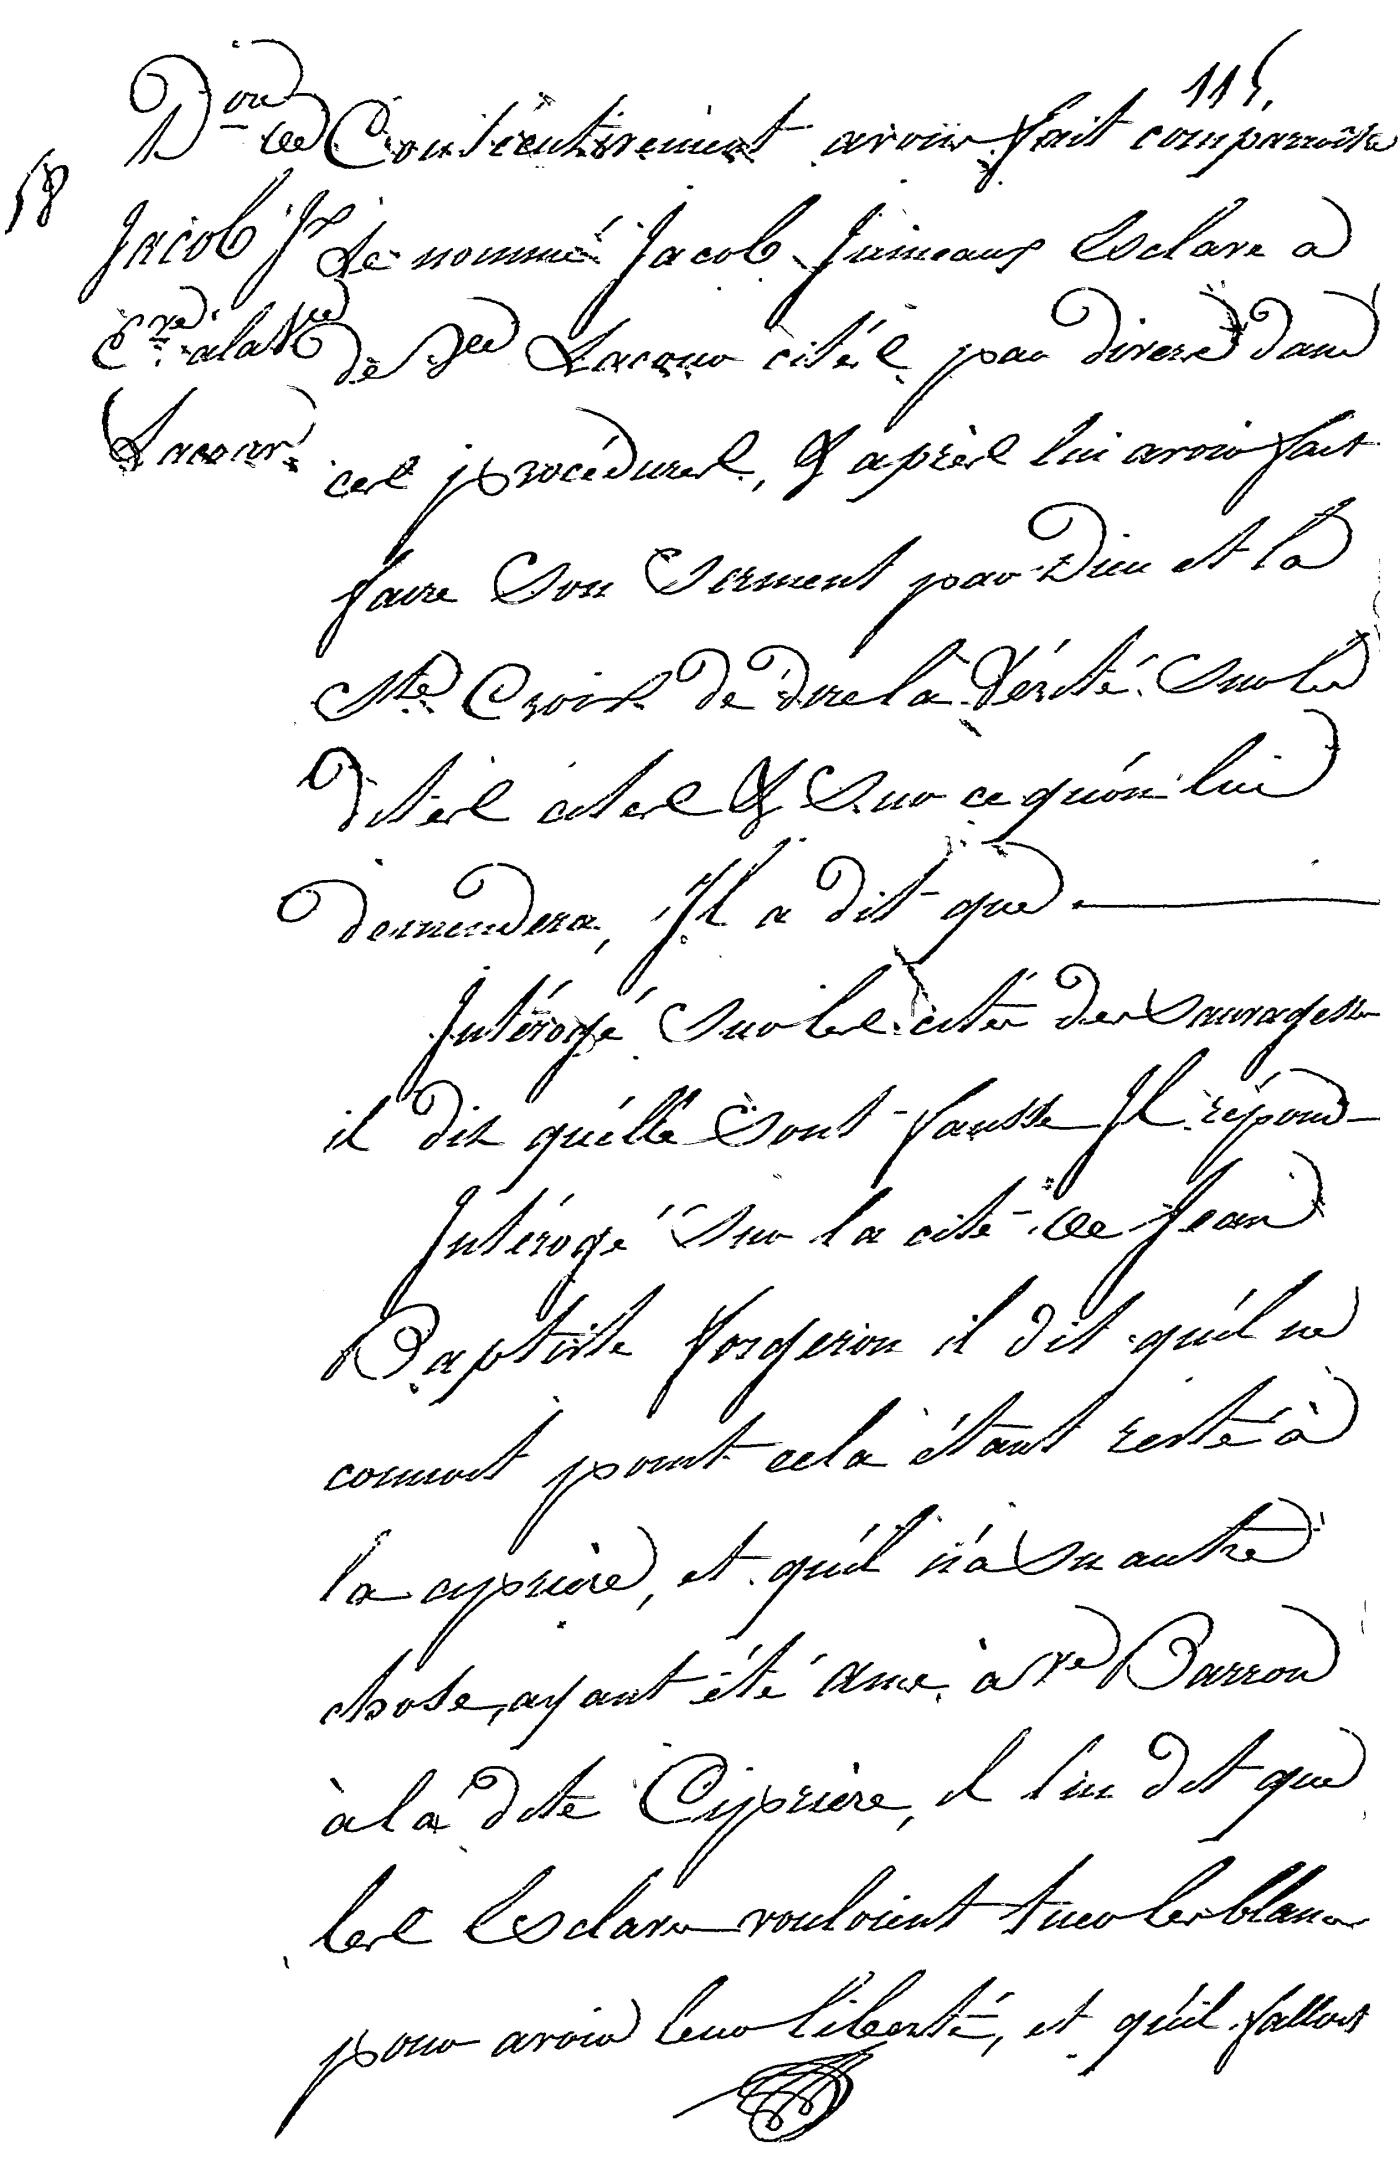 115.
58
D.on de Consécutivement avoir fait comparroitre
Jacob Jx le nommé Jacob Jumeaux Esclave a
C.re à la Ve de Ve Lacour cités par divers dans
Lacour ces procédures, & après lui avoir fait
faire Son Serment par Dieu et la
Ste Croix de dire la Vérité Sur les
dites cites & Sur ce qu'on lui
demandera, Il a dit que
Intérogé Sur les cités des Sauvages
il dit qu'elle Sont fausse Il répond
Intérogé Sur la cité de Jean
Baptiste forgeron il dit qu'il ne
connoit point cela étant resté à
la cyprière, et qu'il n'a Su autre
chose, ayant été avec à Ve Barron
à la dite Ciprière, il lui dit que
les Esclaves vouloient tuer les blancs
pour avoir leur liberté, et qu'il falloit